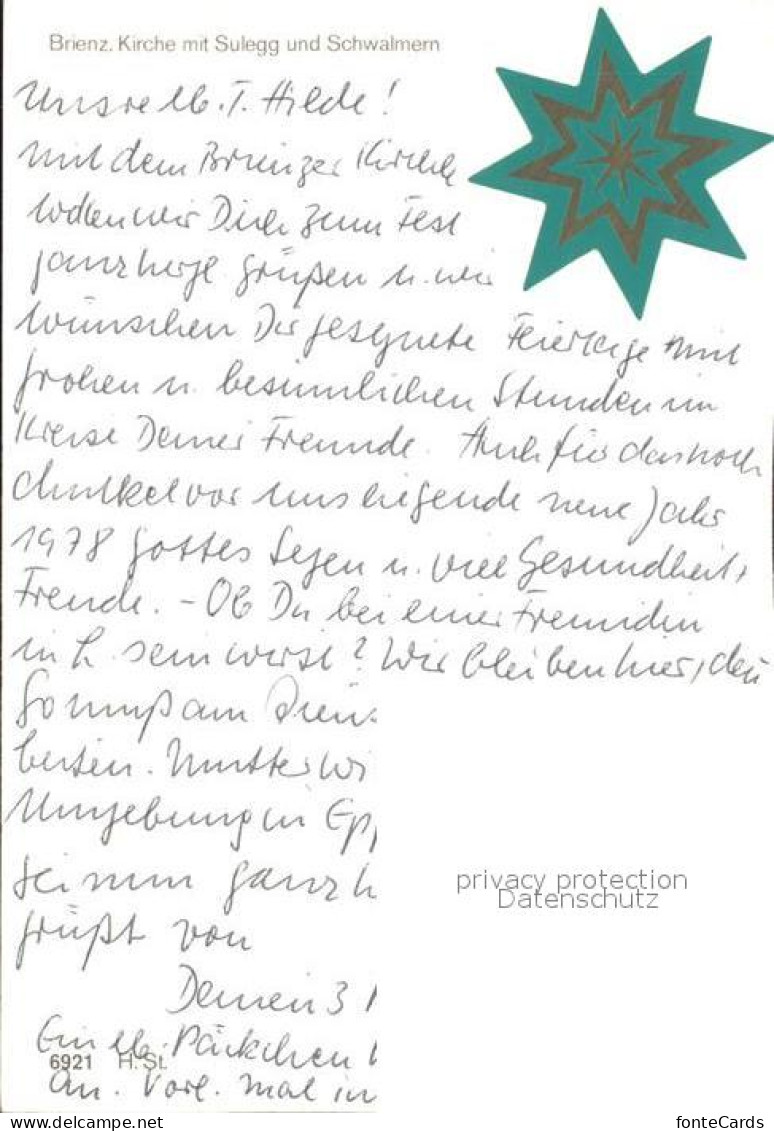 Brienz. Kirche mit Sulegg und Schwalmern
Unsre lb. T. Hilde!
Mit dem Brienzer Kirchle
wollen wir Dich zum Fest
ganz herzl. grüßen u. wir
wünschen Dir gesegnete Feiertage mit
frohen u. besinnlichen Stunden im
Kreise Deiner Freunde. Auch für das noch
dunkel vor uns liegende neue Jahr
1978 Gottes Segen u. viel Gesundheit,
Freude. – Ob Du bei einer Freundin
in L. sein wirst? Wir bleiben hier, den
muß am
Mutter wi
Umgebung in Epp
Sei nun ganz h
grüßt von
Deinen 3
Ein lb. Päckchen
6921 H. St.
an. Vorl. mal in
privacy protection
Datenschutz
delcampe.net
fonteCards